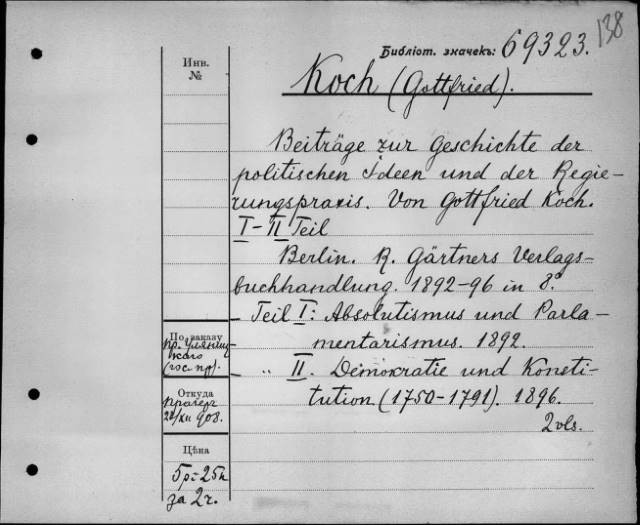 138
Библіот. значекъ: 69323.
Инв.
№
Koch (Gottfried).
Beiträge zur Geschichte der
politischen Ideen und der Regie-
rungspraxis. Von Gottfried Koch.
I-II Teil
Berlin. R. Gärtners Verlags-
buchhandlung. 1892-96 in 8°.
- Teil I: Absolutismus und Parla-
mentarismus. 1892.
- " II. Demokratie und Konsti-
tution (1750-1791). 1896.
2 vls.
По заказу
пр.
(гос. пр).
Откуда
Прагеръ
22/XII 908.
Цѣна
5р-25к
за 2 т.